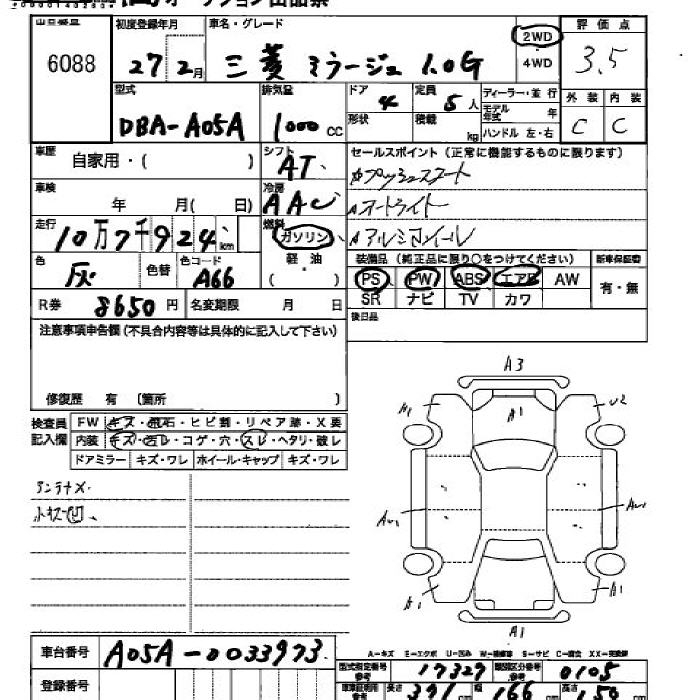 出品番号 6088
初度登録年月 27年 2月
車名・グレード 三菱 ミラージュ 1.0G
2WD
4WD
評価点 3.5
型式 DBA-A05A
排気量 1000 CC
ドア 4
形状
定員 5 人
積載 kg
ディーラー・並行
モデル年式 年
ハンドル 左・右
外装 内装
C C
車歴 自家用・( )
シフト AT
セールスポイント(正常に機能するものに限ります)
プッシュスタート
オートライト
アルミホイール
車検 年 月( 日)
冷房 AAC
走行 10万7千924 km
燃料 ガソリン
軽油
( )
色 灰 色替
色コード A66
装備品(純正品に限り○をつけてください) 新車保証書
PS PW ABS エアB AW 有・無
SR ナビ TV カワ
R券 8650 円 名変期限 月 日
後日品
注意事項申告欄(不具合内容等は具体的に記入して下さい)
修復歴 有 〔箇所 〕
検査員記入欄
FW キズ・飛石・ヒビ割・リペア跡・X要
内装 キズ・汚レ・コゲ・穴・スレ・ヘタリ・破レ
ドアミラー キズ・ワレ ホイール・キャップ キズ・ワレ
アンテナX.
小キズ凹、
A3
A1 A1 U2
A1 A1
A1
車台番号 A05A-0033973
A-キズ E-エクボ U-凹み W-補修跡 S-サビ C-腐食 XX-交換歴
型式指定番号 参考 17327 類別区分番号 参考 0105
登録番号
車庫証明用 参考 長さ 391 cm 幅 166 cm 高さ 150 cm